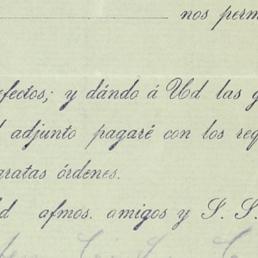 nos perm
efectos; y dándo á Ud las g
adjunto pagaré con los req
aratas órdenes.
d afmos. amigos y S. S.